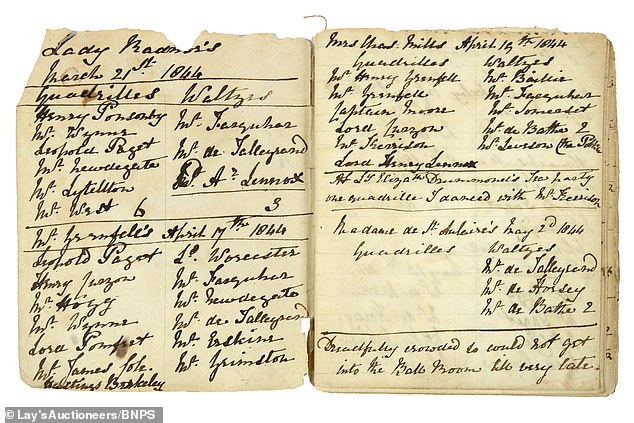 Lady Radnor's
March 21st. 1844
Quadrilles Waltzes
Henry Ponsonby Mr. Farquhar
Mr. Wynne Mr. de Talleyrand
Leopold Paget Lennox
Mr. Newdegate 3
Mr. Lyttelton
Mr. West 6
Mr. Grenfell's April 17th 1844
Leopold Paget Ld. Worcester
Henry Curzon Mr. Farquhar
Mr. Hogg Mr. Newdegate
Mr. Wynne Mr. de Talleyrand
Lord Pomfret Mr. Erskine
Mr. James Mr. Grimston
Hastings Berkeley
Mrs Chas. Mills April 19th 1844
Quadrilles Waltzes
Mr. Henry Grenfell Mr. Baillie
Mr. Grenfell Mr. Farquhar
Captain Moore Mr. Somerset
Lord Curzon Mr. de Bathe 2
Mr. Kerrison Mr. Curzon
Lord Henry Lennox
At Ly. Elizath Drummond's Tea party
one quadrille I danced with Mr. Kerrison
Madame de St. Aulaire's May 2d 1844
Quadrilles Waltzes
Mr. de Talleyrand
Mr. de Horsey
Mr. de Bathe 2
Dreadfully crowded so would not get
into the Ball Room till very late.
© Lay's Auctioneers/BNPS